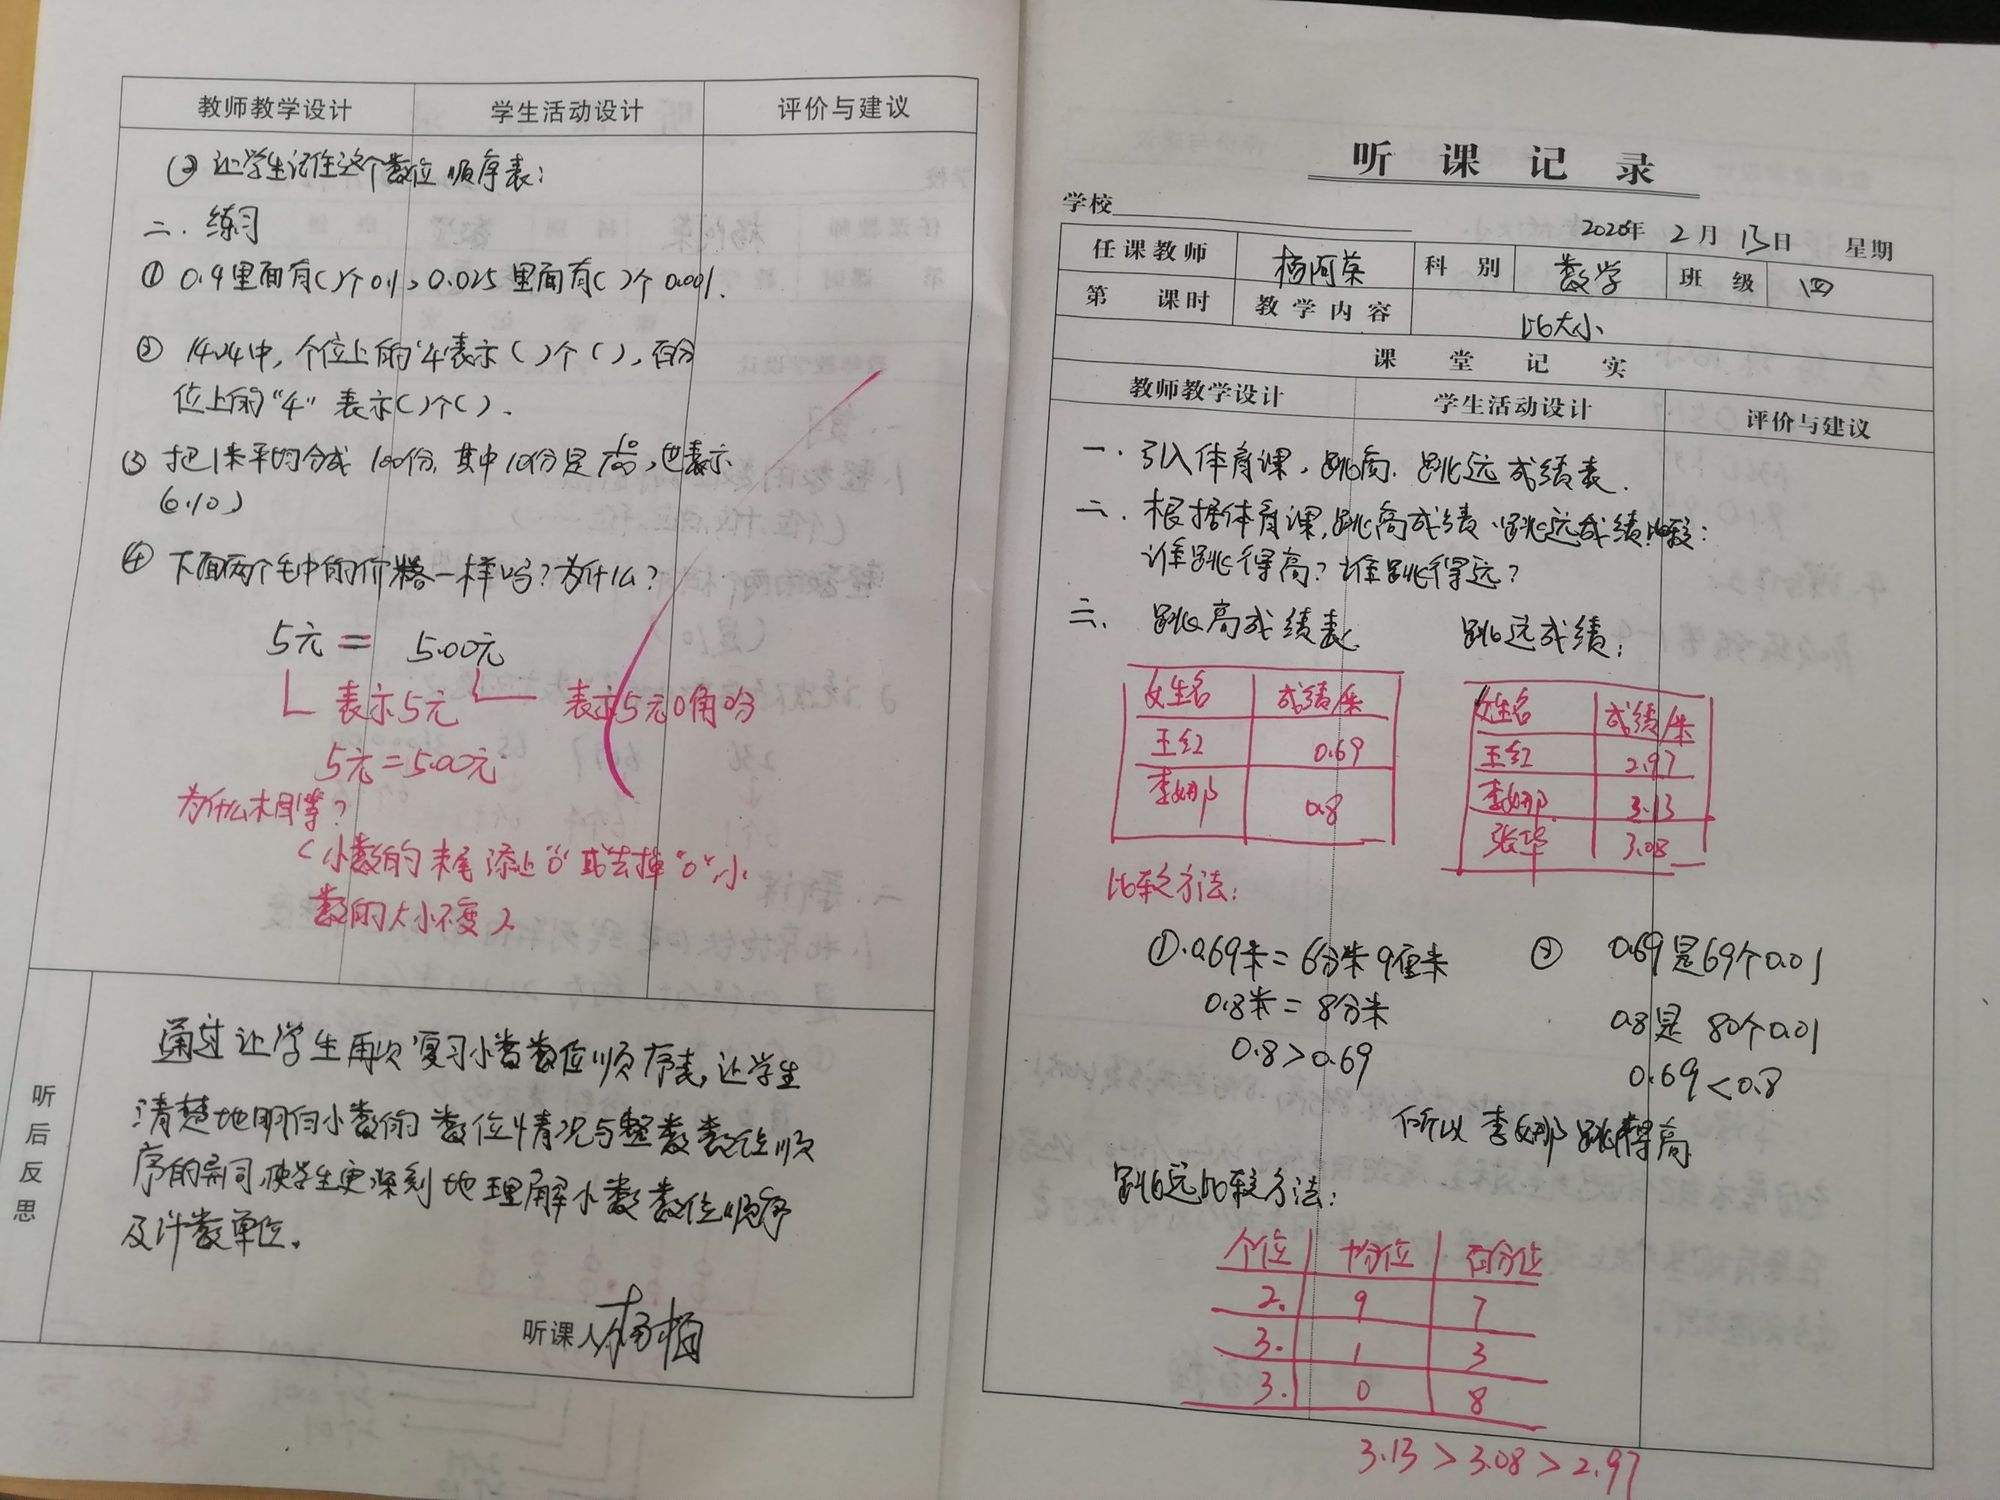 教师教学设计 学生活动设计 评价与建议
② 让学生记住这个数位顺序表:
二. 练习
① 0.9里面有( )个0.1, 0.025里面有( )个0.001.
② 14.24中, 个位上的"4"表示( )个( ), 百分
位上的"4" 表示( )个( ).
③ 把1米平均分成100份, 其中10份是10/100, 也表示
(0.10)
④ 下面两个毛巾的价格一样吗? 为什么?
5元 = 5.00元
表示5元 表示5元0角0分
5元=5.00元
为什么相等?
(小数的末尾添上"0"或去掉"0", 小
数的大小不变)
听后反思
通过让学生再次复习小数数位顺序表, 让学生
清楚地明白小数的数位情况与整数数位顺
序的异同, 使学生更深刻地理解小数数位顺序
及计数单位.
听课人 杨梅
听课记录
学校
2020年 2月 13日 星期
任课教师 杨阿荣 科别 数学 班级 四
第 课时 教学内容 比大小
课堂记实
教师教学设计 学生活动设计 评价与建议
一. 引入体育课, 跳高. 跳远成绩表.
二. 根据体育课, 跳高成绩、跳远成绩比较:
谁跳得高? 谁跳得远?
三. 跳高成绩表 跳远成绩:
女生名 成绩/米
王红 0.69
李娜 0.8
女生名 成绩/米
王红 2.97
李娜 3.13
张华 3.08
比较方法:
①.0.69米=6分米9厘米
0.8米=8分米
0.8>0.69
② 0.69是69个0.01
0.8是 80个0.01
0.69<0.8
所以 李娜跳得高
跳远比较方法:
个位 十分位 百分位
2. 9 7
3. 1 3
3. 0 8
3.13 > 3.08 > 2.97